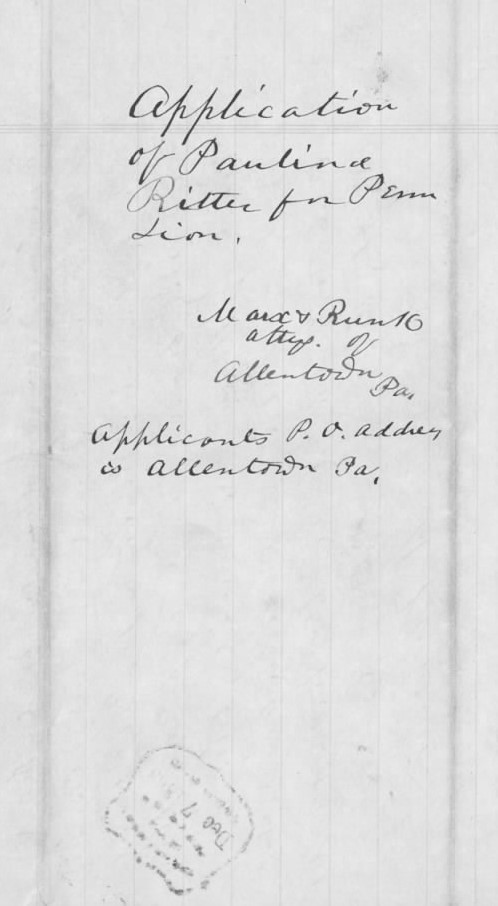 Application
of Paulina
Ritter for Penn
sion.
Marx & Runk
attys. of
Allentown
Pa,
Applicants P. O. address
is Allentown Pa,
Dec 7